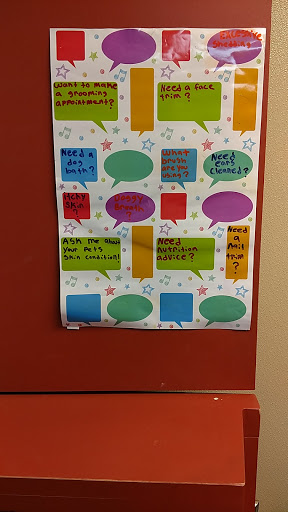 Excessive
Shedding
Want to make
a grooming
appointment?
Need a face
trim?
Need a
dog
bath?
What
brush
are you
using?
Need
ears
cleaned?
Itchy
skin
?
Doggy
Breath
?
Ask me about
your Pets
Skin condition!
Need
Nutrition
advice?
Need
a
Nail
trim
?